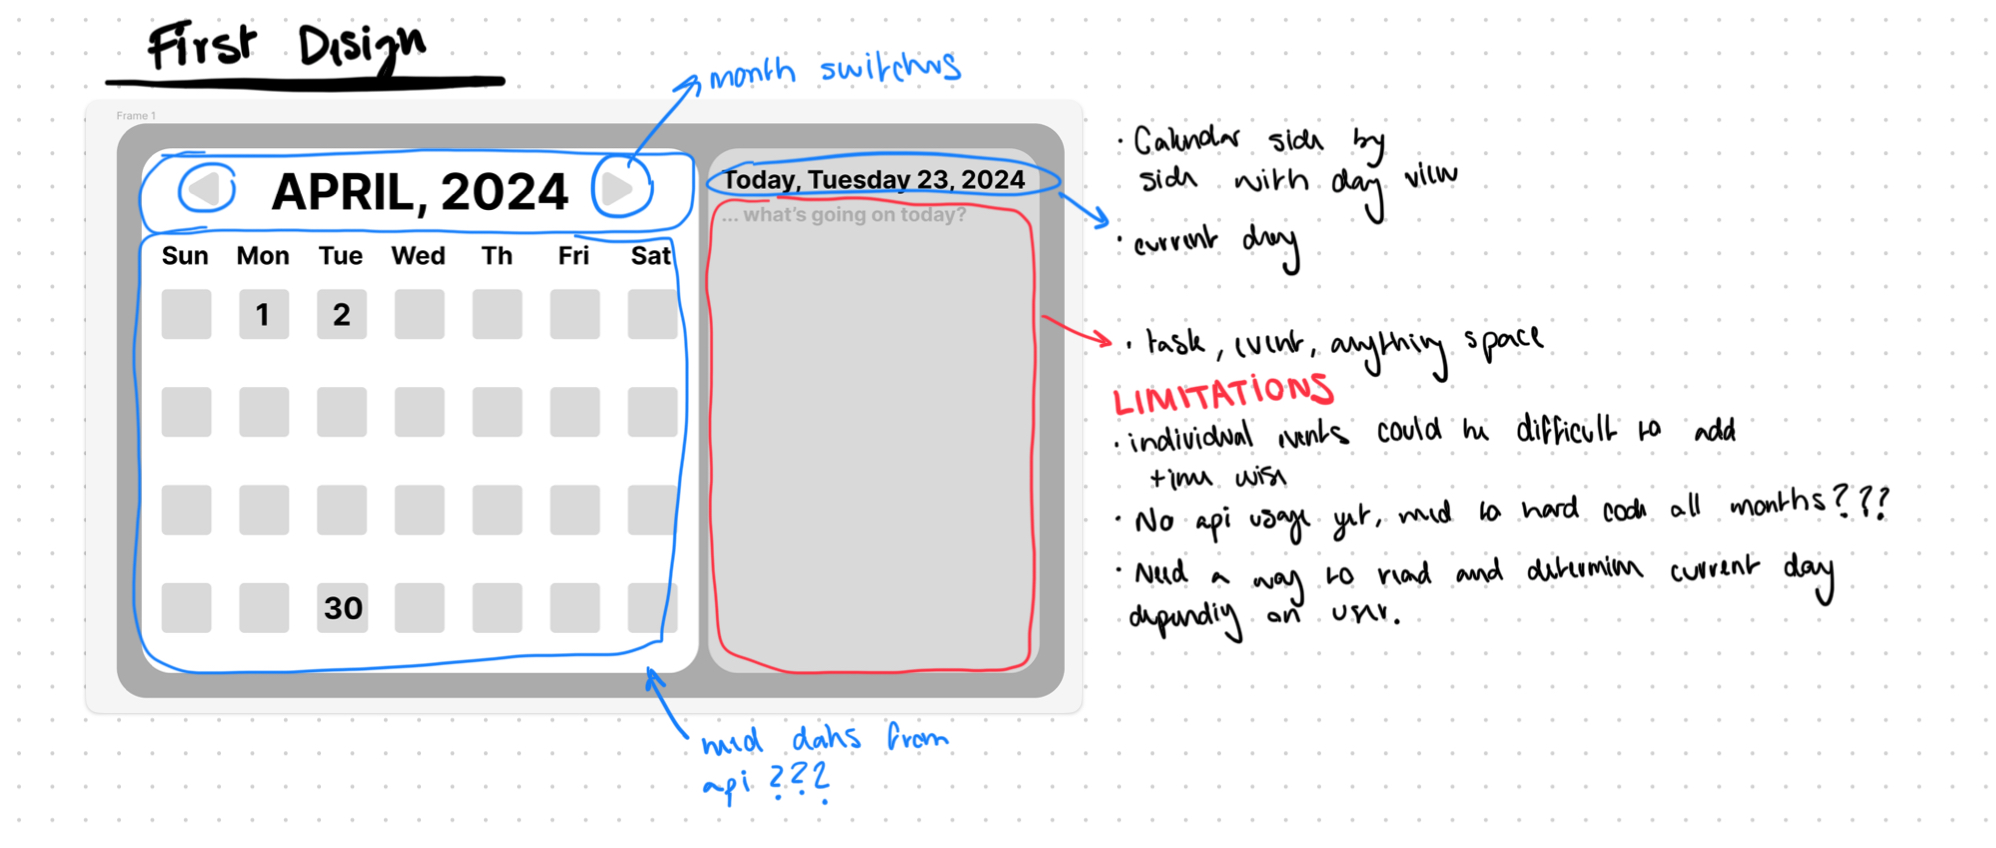 First Design
month switchers
Frame 1
APRIL, 2024
Sun Mon Tue Wed Th Fri Sat
1 2
30
Today, Tuesday 23, 2024
... what's going on today?
• Calendar side by
side with day view
• current day
• task, event, anything space
LIMITATIONS
• individual events could be difficult to add
time wise
• No api usage yet, need to hard code all months???
• Need a way to read and determine current day
depending on user.
need dates from
api ???